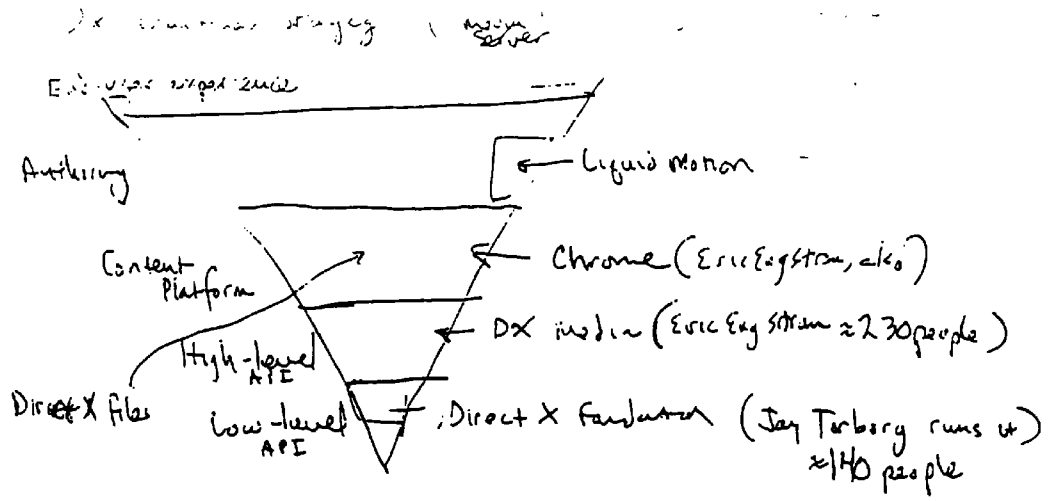 Server
End-user experience
Authoring
Liquid Motion
Content
Platform
Chrome (Eric Engstrom, also)
High-level
API
DX media (Eric Engstrom ≈230 people)
Direct X files
Low-level
API
Direct X Foundation (Jay Torborg runs it)
≈140 people